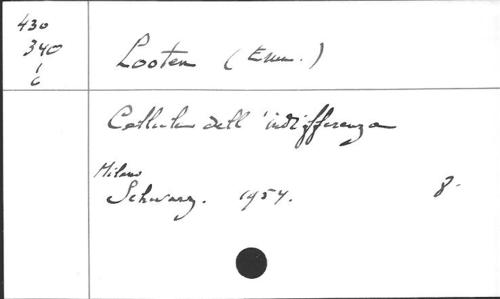 430
340
1
6
Looten (Emm.)
Cellule dell'indifferenza
Milano
Schwarz. 1954. 8-